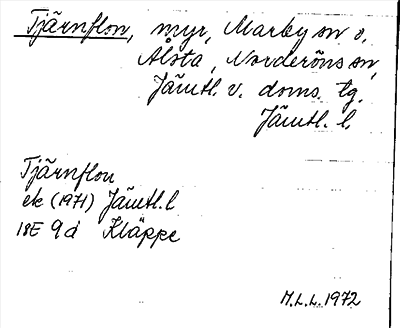 Tjärnflon, myr, Marby sn o.
Ålsta, Norderöns sn,
Jämtl. v. doms. tg.
Jämtl. l.
Tjärnflon
ek (1971) Jämtl. l
18E 9d Kläppe
M.L.L. 1972